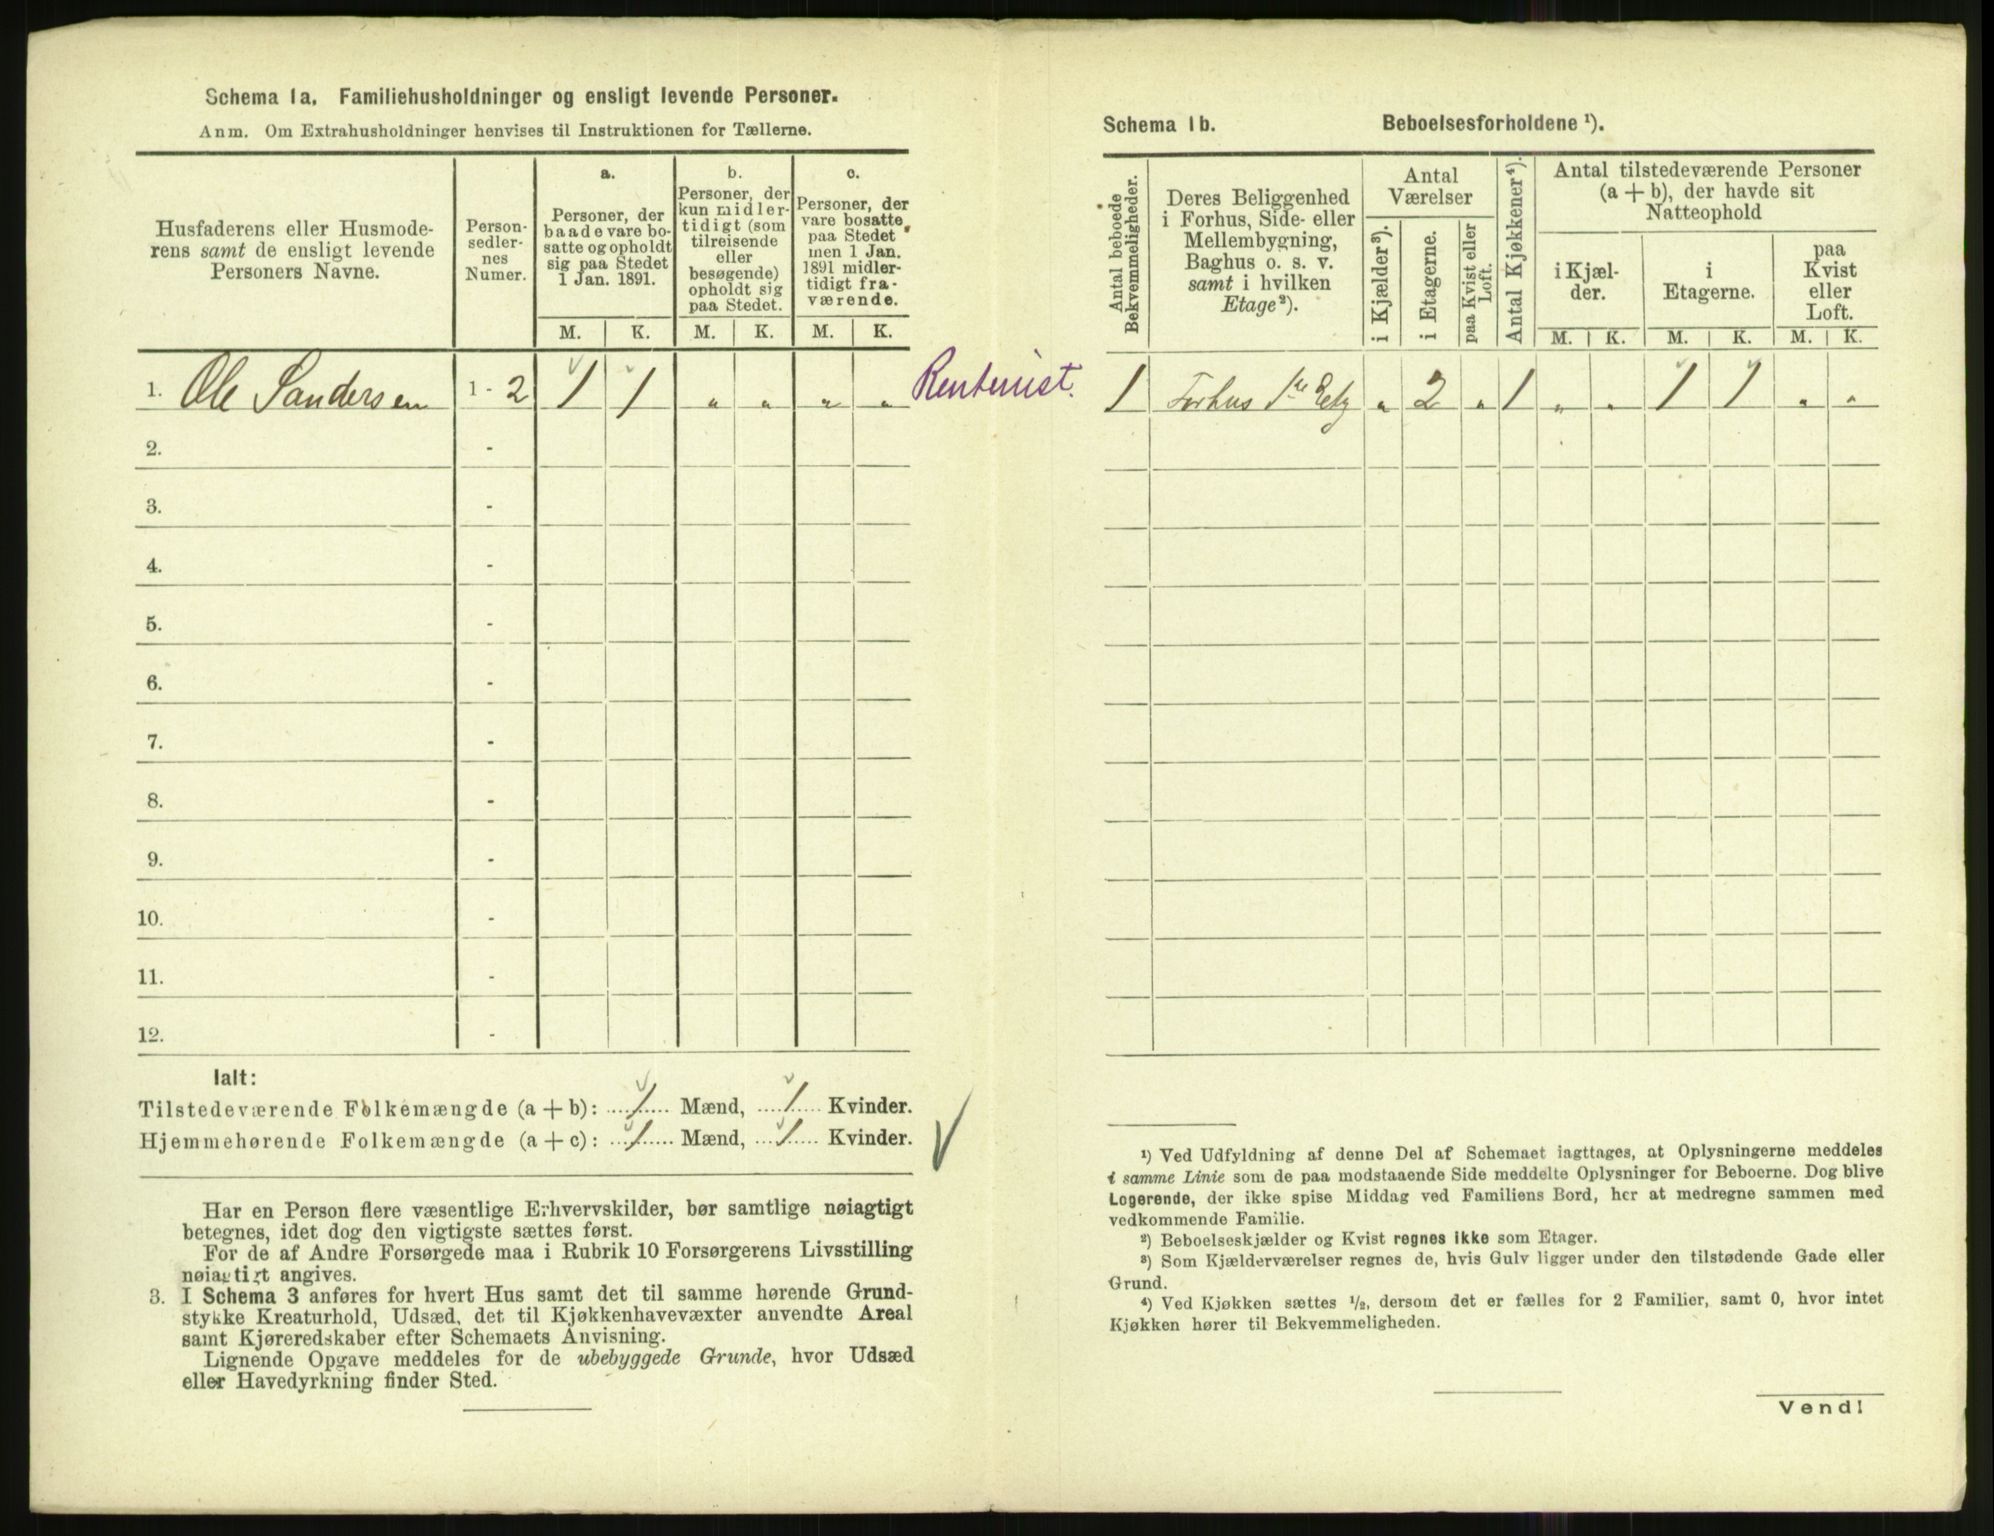 Schema 1a. Familiehusholdninger og ensligt levende Personer.
Anm. Om Extrahusholdninger henvises til Instruktionen for Tællerne.
Husfaderens eller Husmode-
rens samt de ensligt levende
Personers Navne.
Person-
sedler-
nes
Numer.
a.
Personer, der
baade vare bo-
satte og opholdt
sig paa Stedet
1 Jan. 1891.
b.
Personer, der
kun midler-
tidigt (som
tilreisende
eller
besøgende)
opholdt sig
paa Stedet.
c.
Personer, der
vare bosatte
paa Stedet
men 1 Jan.
1891 midler-
tidigt fra-
værende.
M. K. M. K. M. K.
1. Ole Sandersen 1 - 2 1 1 „ „ „ „ Rentenist.
2. -
3. -
4. -
5. -
6. -
7. -
8. -
9. -
10. -
11. -
12. -
Ialt:
Tilstedeværende Folkemængde (a + b): 1 Mænd, 1 Kvinder.
Hjemmehørende Folkemængde (a + c): 1 Mænd, 1 Kvinder.
Har en Person flere væsentlige Erhvervskilder, bør samtlige nøiagtigt
betegnes, idet dog den vigtigste sættes først.
For de af Andre Forsørgede maa i Rubrik 10 Forsørgerens Livsstilling
nøiagtigt angives.
3. I Schema 3 anføres for hvert Hus samt det til samme hørende Grund-
stykke Kreaturhold, Udsæd, det til Kjøkkenhavevæxter anvendte Areal
samt Kjøreredskaber efter Schemaets Anvisning.
Lignende Opgave meddeles for de ubebyggede Grunde, hvor Udsæd
eller Havedyrkning finder Sted.
Schema 1b. Beboelsesforholdene ¹).
Antal beboede
Bekvemmeligheder.
Deres Beliggenhed
i Forhus, Side- eller
Mellembygning,
Baghus o. s. v.
samt i hvilken
Etage²).
Antal
Værelser
i Kjælder³).
i Etagerne.
paa Kvist eller
Loft.
Antal Kjøkkener⁴).
Antal tilstedeværende Personer
(a + b), der havde sit
Natteophold
i Kjæl-
der.
i
Etagerne.
paa
Kvist
eller
Loft.
M. K. M. K. M. K.
1 Forhus 1ste Etg „ 2 „ 1 „ „ 1 1 „ „
¹) Ved Udfyldning af denne Del af Schemaet iagttages, at Oplysningerne meddeles
i samme Linie som de paa modstaaende Side meddelte Oplysninger for Beboerne. Dog blive
Logerende, der ikke spise Middag ved Familiens Bord, her at medregne sammen med
vedkommende Familie.
²) Beboelseskjælder og Kvist regnes ikke som Etager.
³) Som Kjælderværelser regnes de, hvis Gulv ligger under den tilstødende Gade eller
Grund.
⁴) Ved Kjøkken sættes ½, dersom det er fælles for 2 Familier, samt 0, hvor intet
Kjøkken hører til Bekvemmeligheden.
Vend!